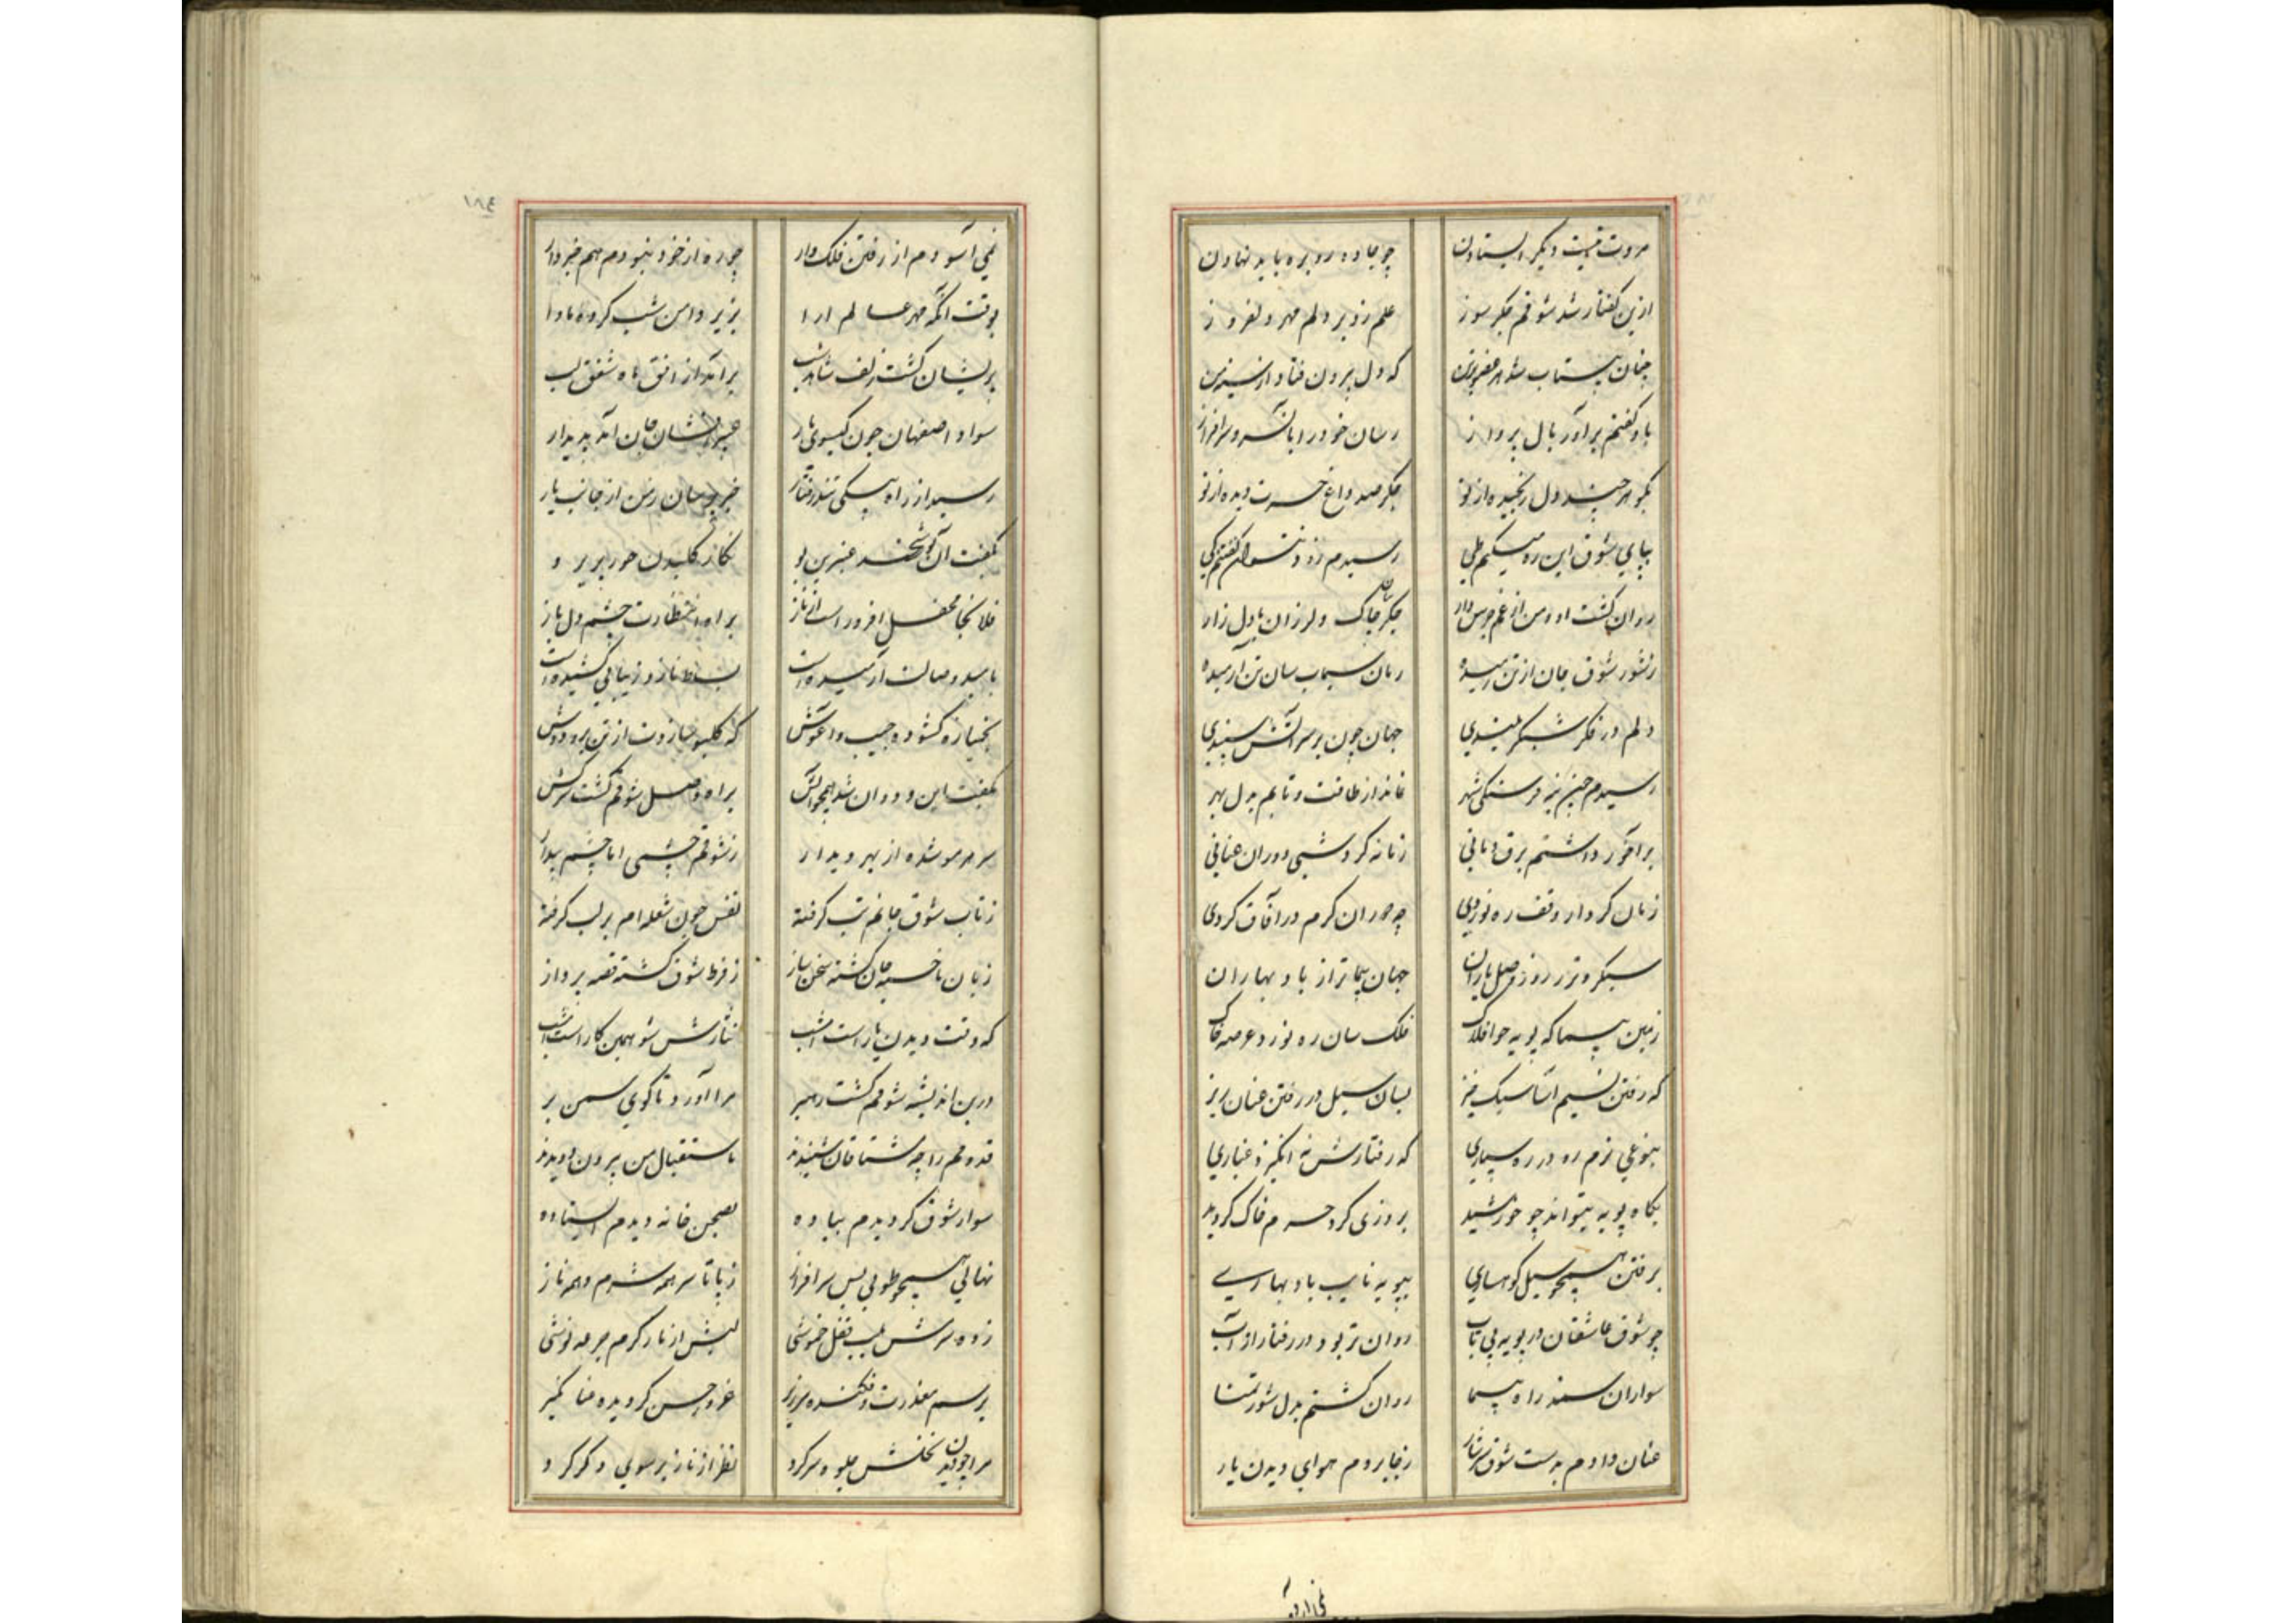 مروت نیست دیگر ایستادن چو جاده رو بره باید نهادن
ازین گفتار شد شوقم جگر سوز علم زد بر دلم مهر دلفروز
چنان بیتاب شد هر عضوی از من که دل بیرون فتاد از سینه من
باو گفتم برآور بال پرواز رسان خود را بآن سرو سرافراز
بگو هر چند دل رنجیده از تو جگر صد داغ حسرت دیده از تو
بپای شوق این ره میکنم طی رسیدم زود نتوان گفتم کی
روان گشت او و من از غم جرس وار جگر چاک و لرزان با دل زار
ز شور شوق جان از تن رمیده رمان سیماب سان تن آرمیده
دلم در فکر شبگر بلندی جهان چون بر سر آتش سپندی
رسیدم چین نیز فرسنگی شهر نماند از طاقت و تابم بدل بهر
برآخور داشتم برق دمانی زمانه گردشی دوران عنانی
زمان کردار وقف ره نوردی چو دوران گرم در آفاق گردی
سبکروتر ز روز وصل یاران جهان پیماتر از باد بهاران
زمین پیما که پویه چو افلاک فلک سان ره نورد عرصه خاک
که رفتن نسیم آسا سبک خیز بسان سیل در رفتن عنان ریز
بنوعی نرم رو در ره سپاری که رفتارش نه انگیزد غباری
بگاه پویه میتواند چو خورشید بروزی گرد جرم خاک گردید
برفتن همچو سیل کوهساری بپویه نایب باد بهاری
چو شوق عاشقان در پویه بی تاب روان تر بود در رفتار از آب
سواران سمند راه پیما روان گشتم بدل شور تمنا
عنان دادم بدست شوق سرشار ز جا بردم هوای دیدن یار
نمی آسودم از رفتن فلک وار چو ره از خود نبودم هم خبردار
بوقت آنکه مهر عالم آرا بزیر دامن شب کرد ماوا
پریشان گشت زلف شاهد شب برآمد از افق ماه شفق لب
سواد اصفهان چون گیسوی یار عبیر افشان جان آمد پدیدار
رسید از راه پیکی تند رفتار خبر پرسان ز من از جانب یار
بگفت آن نوشخند عنبرین بو نگار گلبدن حور پریرو
فلانجا محفل افروز است از ناز براه انتظارت چشم دل باز
بامید وصالت آرمیده است بساط ناز و زیبایی کشیده است
بخمیازه گشوده جیب و آغوش که گلبو سازدت از تن برو دوش
بگفت این و دوان شد همچو آتش براه وصل شوقم گشت سرکش
سر هر مو شده از بهر دیدار ز شوقم چشمی اما چشم بیدار
ز تاب شوق جانم تب گرفته نفس چون شعله ام بر لب گرفته
زبان با خسته جان گشته سخن ساز ز فرط شوق گشته قصه پرداز
که وقت دیدن یار است امشب نثارش شو همین کار است امشب
درین اندیشه شوقم گشت رهبر مرا آورد تا کوی سمن بر
قدومم را چو مشتاقان شنیدند باستقبال من بیرون دویدند
سوار شوق گردیدم پیاده بصحن خانه دیدم ایستاده
نهالی همچو طوبی بس سرافراز ز پا تا سر همه شرم و همه ناز
زده سرش بلب قفل خموشی لبش از ناز گرم جرعه نوشی
برسم معذرت افکنده سر زیر غرور حسن گردیده عنانگیر
مرا چون دید نخلش جلوه سر کرد نظر از ناز بر سوی دگر کرد
۱۸۴